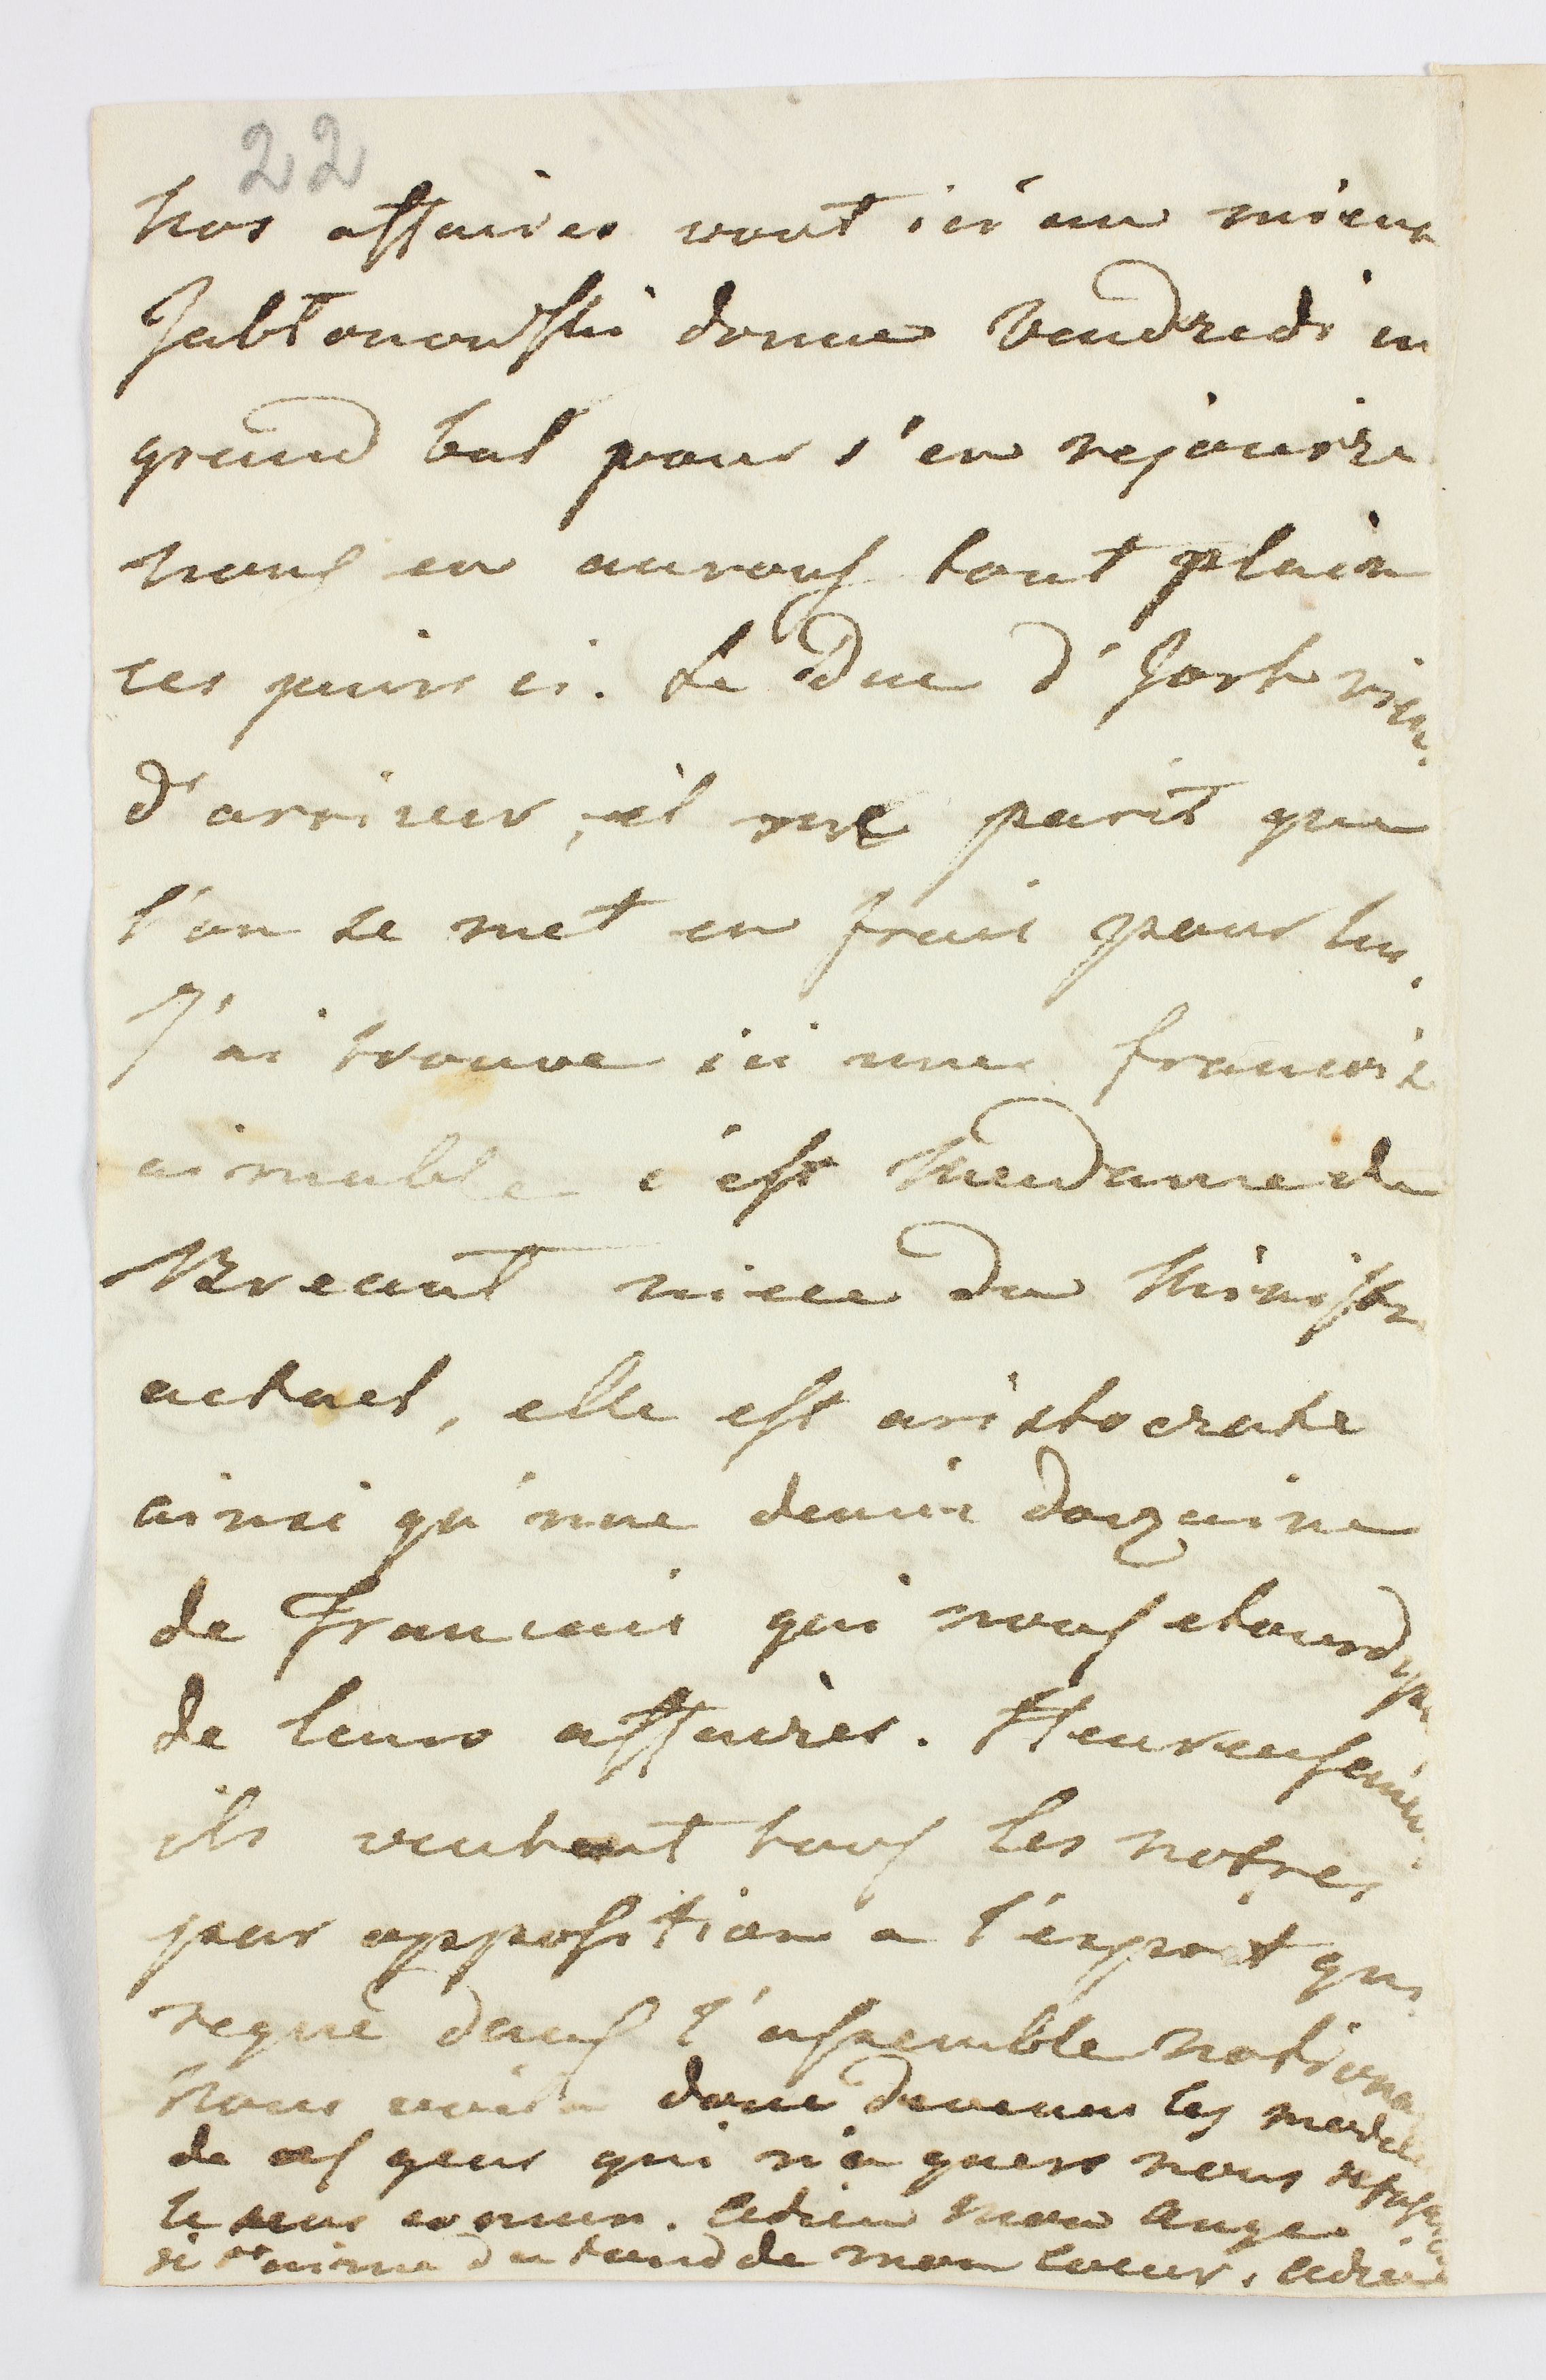 22
Nos affaires vont ici au mieux
Jabłonowski donne Vendredi un
grand bal pour s'en rejouire
nous en aurons tout plain
ces jours ci. Le Duc d'Jork vien
d'arriver, il me parit que
l'on se met en frais pour lui.
J'ai trouve ici une francoise
aimable c'est Madame de
niece du Ministre
actuel, elle est aristocrate
ainsi qu'une demie douzaine
de Francais qui nous
de leurs affaires. Heureusement
ils tous les notres
par opposition a l'esprit qui
regne dans l'assemble nationa
Nous voila donc devenu les modele
de ces gens qui n'a guere nous
le sens comun. Adieu mon Ange
du fond de mon Coeur. Adieu